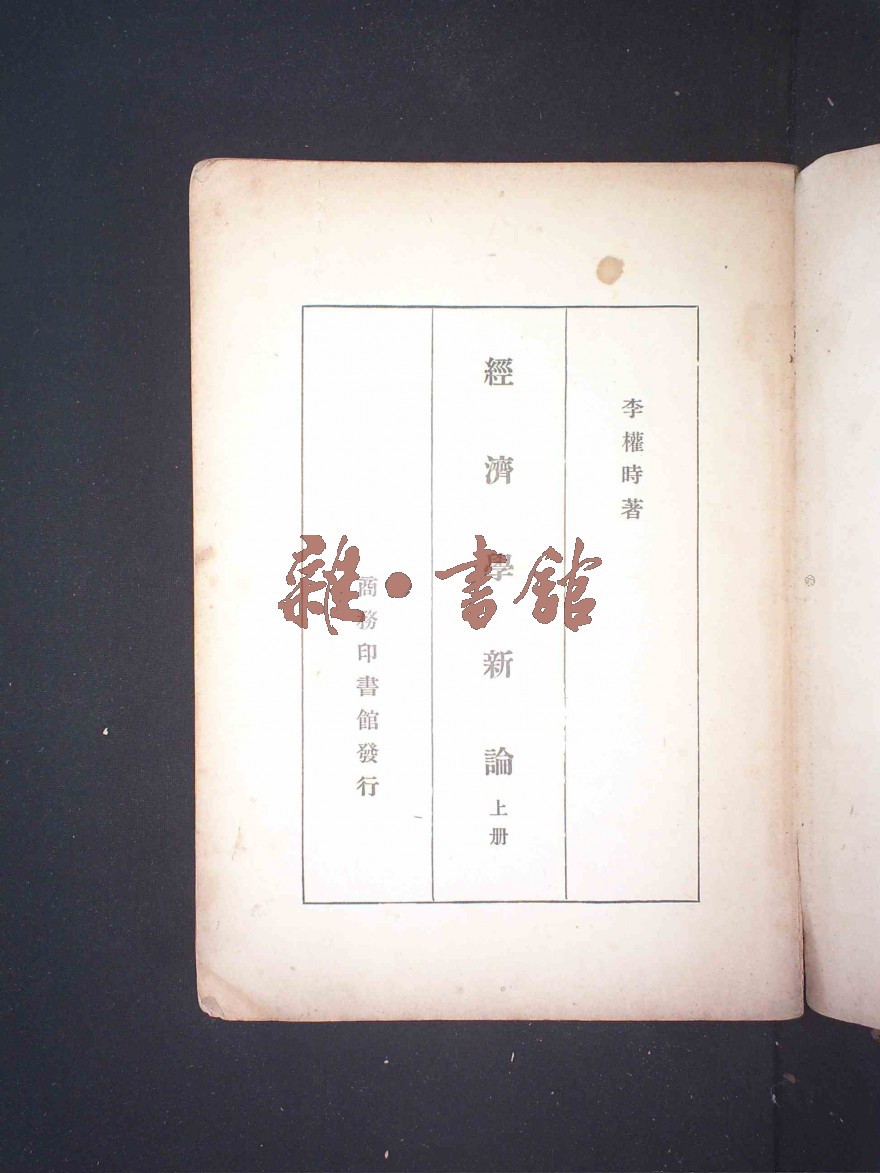 李權時著
經濟學新論 上册
商務印書館發行
雜·書館